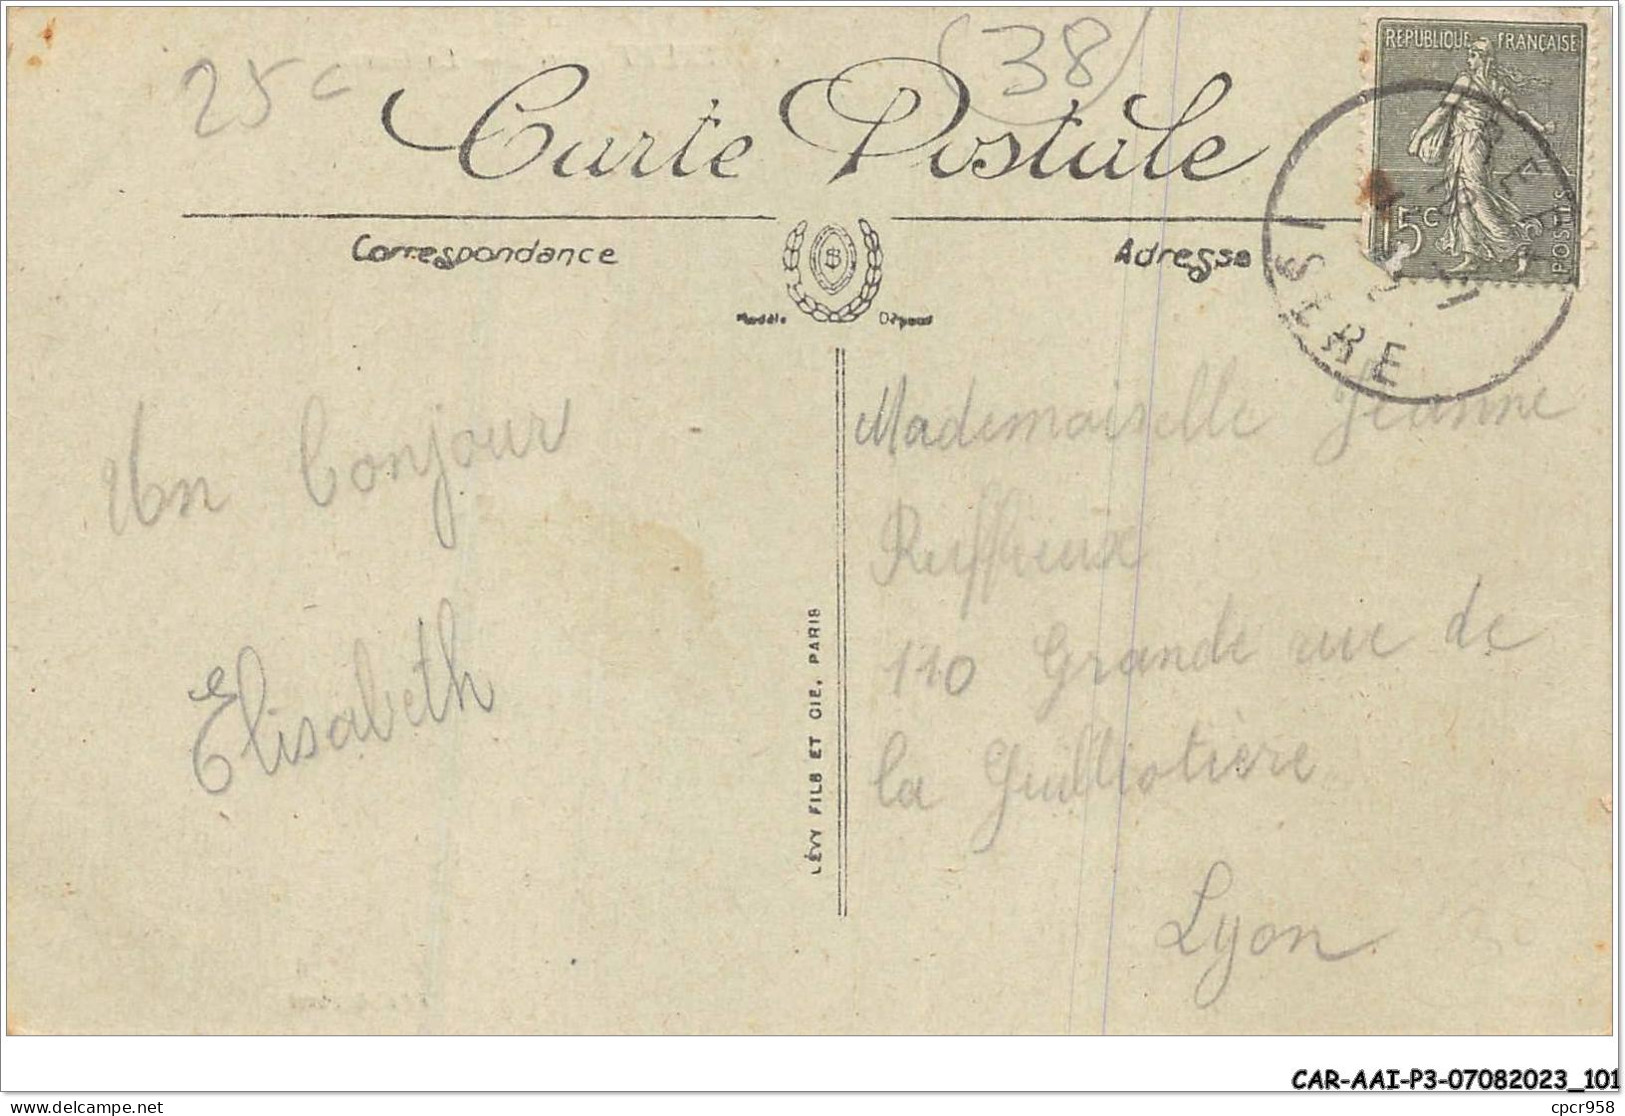 25c
(38)
Carte Postale
RÉPUBLIQUE FRANÇAISE
15c
POSTES
ISERE
Correspondance
Adresse
Modèle Déposé
Un bonjour
Elisabeth
LÉVY FILS ET CIE, PARIS
Mademoiselle Jeanne
Ruffieux
110 Grande rue de
la Guillotière
Lyon
CAR-AAI-P3-07082023_101
cpcr958